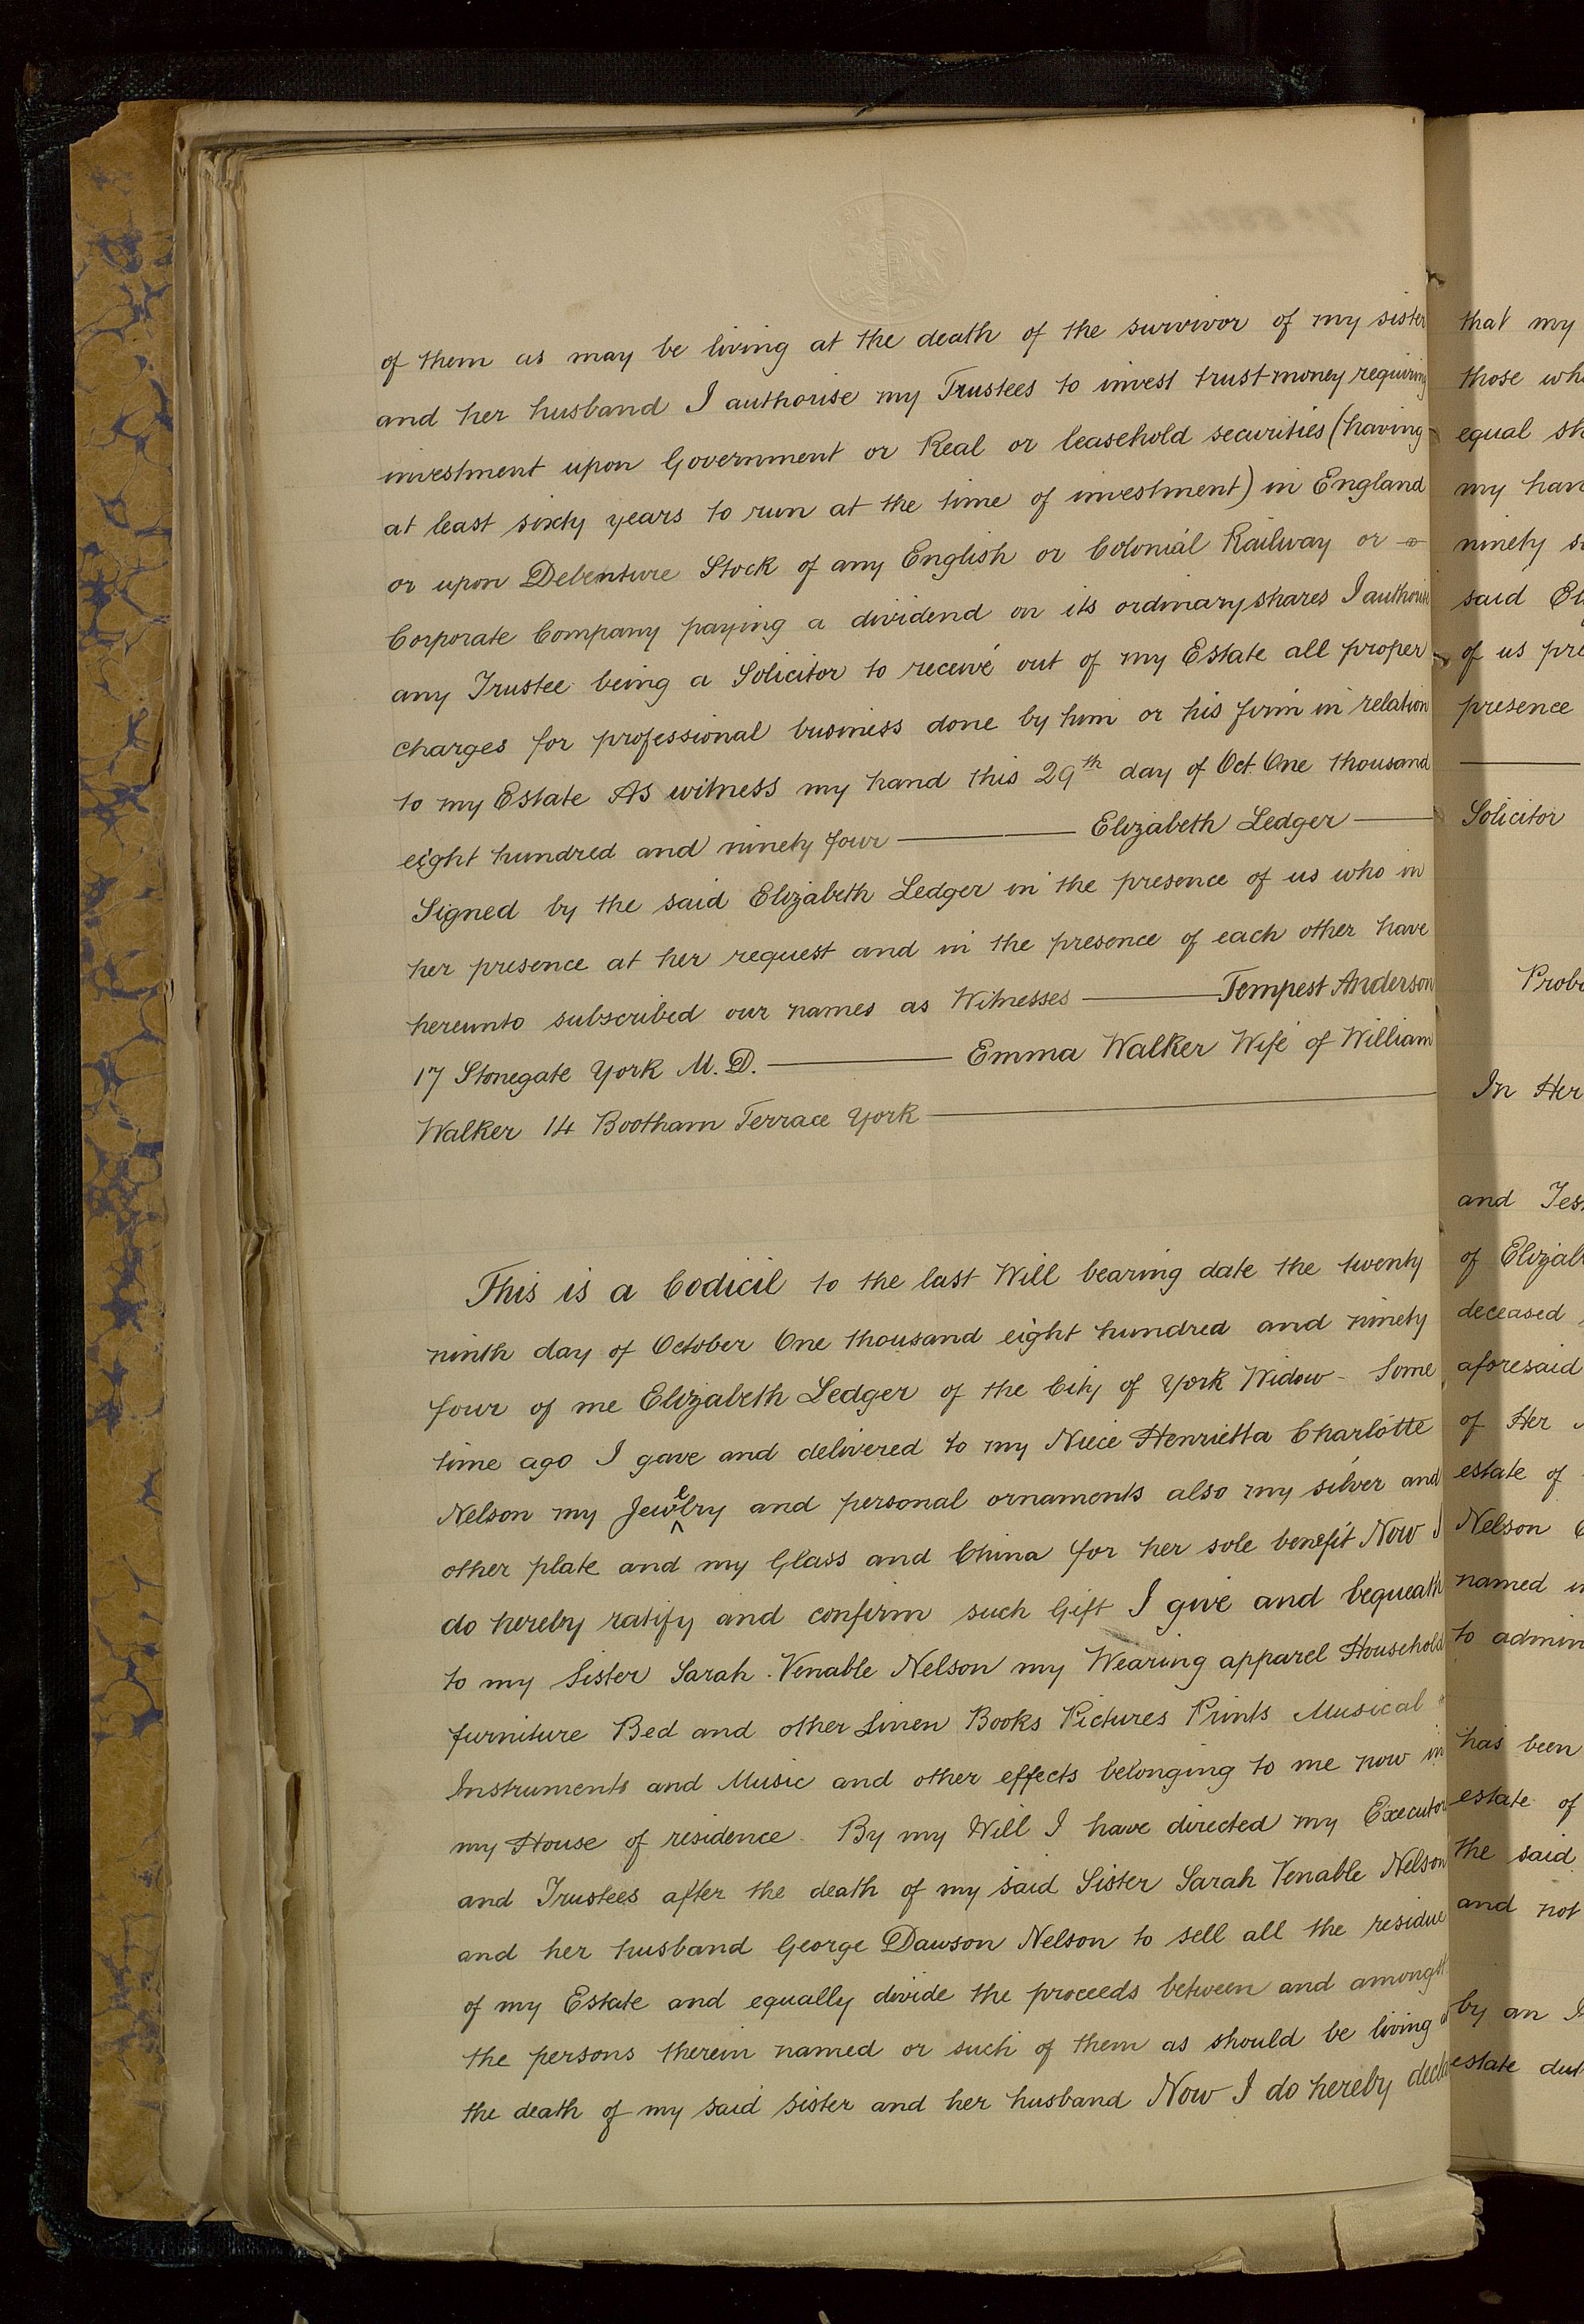 of them as may be living at the death of the survivor of my sister
and her husband I authorise my Trustees to invest trust money requiring
investment upon Government or Real or leasehold securities (having
at least sixty years to run at the time of investment) in England
or upon Debenture Stock of any English or Colonial Railway or
Corporate Company paying a dividend on its ordinary shares I authorise
any Trustee being a Solicitor to receive out of my Estate all proper
charges for professional business done by him or his firm in relation
to my Estate As witness my hand this 29th day of Oct. One thousand
eight hundred and ninety four ——— Elizabeth Ledger ———
Signed by the said Elizabeth Ledger in the presence of us who in
her presence at her request and in the presence of each other have
hereunto subscribed our names as Witnesses ——— Tempest Anderson
17 Stonegate York M.D. ——— Emma Walker Wife of William
Walker 14 Bootham Terrace York ———
This is a Codicil to the last Will bearing date the twenty
ninth day of October One thousand eight hundred and ninety
four of me Elizabeth Ledger of the City of York Widow - Some
time ago I gave and delivered to my Niece Henrietta Charlotte
Nelson my Jewelry and personal ornaments also my silver and
other plate and my Glass and China for her sole benefit Now I
do hereby ratify and confirm such Gift I give and bequeath
to my Sister Sarah Venable Nelson my Wearing apparel Household
furniture Bed and other Linen Books Pictures Prints Musical
Instruments and Music and other effects belonging to me now in
my House of residence. By my Will I have directed my Executors
and Trustees after the death of my said Sister Sarah Venable Nelson
and her husband George Dawson Nelson to sell all the residue
of my Estate and equally divide the proceeds between and amongst
the persons therein named or such of them as should be living
the death of my said sister and her husband Now I do hereby
that my
those
equal
my
ninety
said
of us
presence
Solicitor
In Her
and
of
deceased
aforesaid
of Her
estate of
Nelson
named
to
has been
estate of
the said
and not
by an
estate